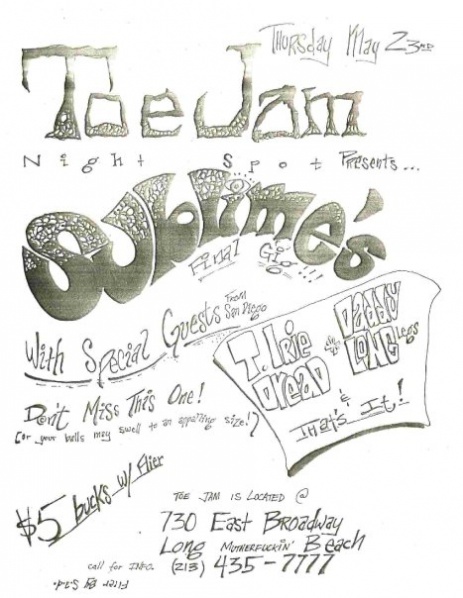 Thursday May 23rd
Toe Jam
Night Spot Presents...
Sublime's
Final Gig!!!
With Special Guests From San Diego
T. Irie Dread
Daddy Long Legs
&
That's It!
Don't Miss This One!
(or your balls may swell to an appalling size!)
$5 bucks w/ Flier
Toe Jam is Located @
730 East Broadway
Long Motherfuckin' Beach
call for INFO. (213) 435-7777